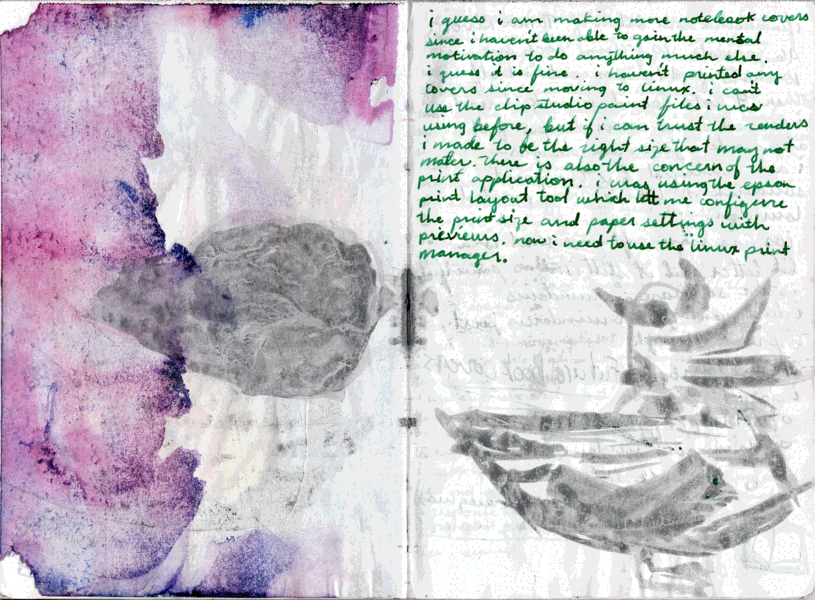 i guess i am making more notebook covers
since i haven't been able to gain the mental
motivation to do anything much else.
i guess it is fine. i haven't printed any
covers since moving to linux. i can't
use the clip studio paint files i was
using before, but if i can trust the renders
i made to be the right size that may not
mater. there is also the concern of the
print application. i was using the epson
print layout tool which lett me configerre
the print size and paper settings with
previews. now i need to use the linux print
manager.